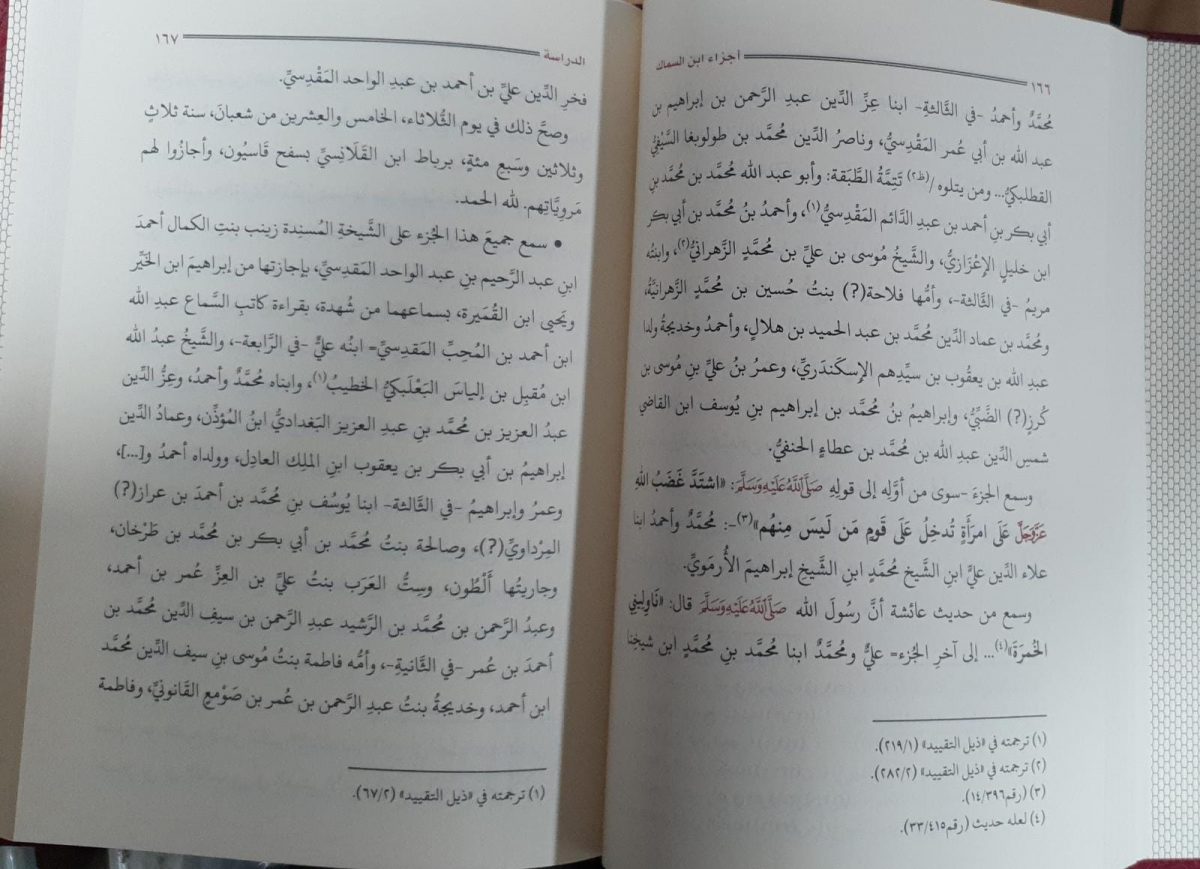 ١٦٦ أجزاء ابن السماك
مُحمَّدٌ وأحمدُ -في الثَّالثةِ- ابنا عِزِّ الدِّين عبدِ الرَّحمن بن إبراهيم بن
عبد الله بن أبي عُمر المَقْدِسيِّ، وناصرُ الدِّين مُحمَّد بن طولوبغا السَّيْفِيُّ
القطلبكيُّ... ومن يتلوه /(ظ٢) تَتِمَّةُ الطَّبَقة: وأبو عبد الله مُحمَّد بن مُحمَّدِ بنِ
أبي بكرِ بنِ أحمد بن عبدِ الدَّائم المَقْدِسيُّ(١)، وأحمدُ بنُ مُحمَّد بن أبي بكر
ابن خليلٍ الإعْزَازيُّ، والشَّيخُ مُوسى بن عليِّ بن مُحمَّدٍ الزَّهرانيُّ(٢)، وابنتُه
مريمُ -في الثَّالثة-، وأمُّها فلاحة(?) بنتُ حُسين بن مُحمَّدٍ الزَّهرانيَّةُ،
ومُحمَّد بن عماد الدِّين مُحمَّد بن عبد الحميد بن هلالٍ، وأحمدُ وخديجةُ ولدا
عبدِ الله بن يعقُوب بن سيِّدِهم الإسكَندَريِّ، وعمرُ بنُ عليِّ بنِ مُوسى بن
كُرزٍ(?) الضَّبِّيُّ، وإبراهيمُ بنُ مُحمَّد بن إبراهيم بنِ يُوسف ابن القاضي
شمسِ الدِّين عبدِ الله بن مُحمَّد بن عطاءٍ الحنفيُّ.
وسمع الجزءَ -سوى من أوَّله إلى قولِه صَلَّى اللَّهُ عَلَيْهِ وَسَلَّمَ: «اشتَدَّ غَضَبُ اللهِ
عَزَّوَجَلَّ عَلَى امرَأَةٍ تُدخِلُ عَلَى قَومٍ مَن لَيسَ مِنهُم»(٣)-: مُحمَّدٌ وأحمدُ ابنا
علاء الدِّين عليِّ ابنِ الشَّيخ مُحمَّدِ ابنِ الشَّيخ إبراهيمَ الأُرمَويِّ.
وسمع من حديث عائشة أنَّ رسُولَ الله صَلَّى اللَّهُ عَلَيْهِ وَسَلَّمَ قال: «نَاوِلِيني
الخُمرَةَ»(٤)... إلى آخرِ الجُزء= عليٌّ ومُحمَّدٌ ابنا مُحمَّد بنِ مُحمَّدٍ ابن شيخِنا
(١) ترجمته في «ذيل التقييد» (٢١٩/١).
(٢) ترجمته في «ذيل التقييد» (٢٨٢/٢).
(٣) (رقم١٤/٣٩٦).
(٤) لعله حديث (رقم٣٣/٤١٥).
الدراسة ١٦٧
فخرِ الدِّين عليِّ بن أحمد بن عبدِ الواحد المَقْدِسيِّ.
وصحَّ ذلك في يوم الثُّلاثاء، الخامس والعِشرين من شعبانَ، سنة ثلاثٍ
وثلاثين وسَبعِ مئةٍ، برباط ابن القَلَانِسيِّ بسفح قَاسيُون، وأجازُوا لهم
مَرويَّاتِهم. لله الحمد.
• سمع جميعَ هذا الجُزء على الشَّيخةِ المُسنِدة زينب بنتِ الكمال أحمدَ
ابنِ عبد الرَّحيم بنِ عبد الواحد المَقدِسيِّ، بإجازتها من إبراهيمَ ابن الخَيِّر
ويَحيى ابن القُمَيرة، بسماعهما من شُهدة، بقراءة كاتبِ السَّماع عبدِ الله
ابن أحمد بن المُحِبِّ المَقدِسيِّ= ابنُه عليٌّ -في الرَّابعة-، والشَّيخُ عبدُ الله
ابن مُقبِل بن إلياسَ البَعْلَبكيُّ الخطيبُ(١)، وابناه مُحمَّدٌ وأحمدُ، وعِزُّ الدِّين
عبدُ العزيز بن مُحمَّد بنِ عبدِ العزيز البَغداديُّ ابنُ المُؤذِّن، وعمادُ الدِّين
إبراهيمُ بن أبي بكر بن يعقوب ابنِ المَلِك العادِل، وولداه أحمدُ و[...]،
وعمرُ وإبراهيمُ -في الثَّالثة- ابنا يُوسُف بنِ مُحمَّد بن أحمدَ بن عراز(?)
المِرْداويِّ(?)، وصالحة بنتُ مُحمَّد بن أبي بكر بن مُحمَّد بن طَرْخان،
وجاريتُها أَلْطُون، وسِتُّ العَرَب بنتُ عليِّ بن العِزِّ عُمر بن أحمد،
وعبدُ الرَّحمن بن مُحمَّد بن الرَّشيد عبدِ الرَّحمن بن سيفِ الدِّين مُحمَّد بن
أحمدَ بن عُمر -في الثَّانيةِ-، وأمُّه فاطمة بنتُ مُوسى بنِ سيف الدِّين مُحمَّد
ابن أحمد، وخديجةُ بنتُ عبدِ الرَّحمن بن عُمر بن صَوْمعٍ القَانونيِّ، وفاطمة
(١) ترجمته في «ذيل التقييد» (٦٧/٢).